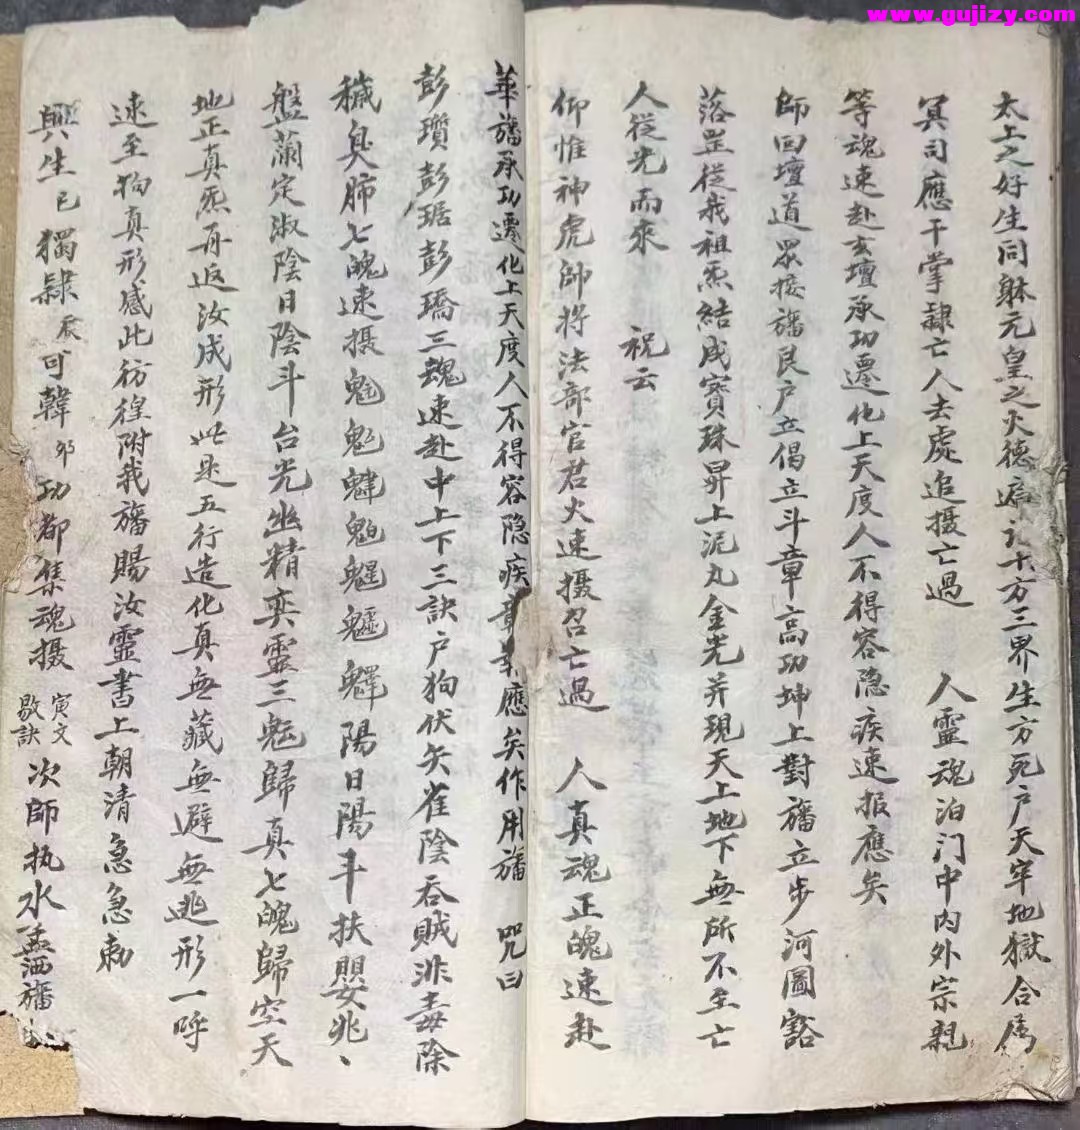 www.gujizy.com
太上之好生同躰元皇之火德遍十方三界生方死户天牢地獄合属
冥司應干掌隷亡人去處追摄亡過 人靈魂泊门中内外宗親
等魂速赴玄壇承功遷化上天度人不得容隐疾速报應矣
師回壇道眾接旛艮户立偈立斗章高功坤上對旛立步河圖豁
落罡從我祖炁結成寳珠昇上泥丸金光并現天上地下無所不至亡
人從光而來 祝云
仰惟神虎師将法部官君火速摄召亡過 人真魂正魄速赴
華旛承功遷化上天度人不得容隐疾應矣作用旛 咒曰
彭瓆彭琚彭璚三魂速赴中上下三訣户狗伏矢雀陰吞贼非毒除
穢臭肺七魄速摄陽日陽斗扶嬰兆、
盤蘭定淑陰日陰斗台光幽精奕靈三魂歸真七魄歸空天
地正真炁再返汝成形此是五行造化真無藏無避無逃形一呼
速至狗真形感此彷徨附我旛賜汝靈書上朝清急急勅
興生巳獨隸辰可韓卯功都集魂摄寅文敬訣次師执水盂洒旛